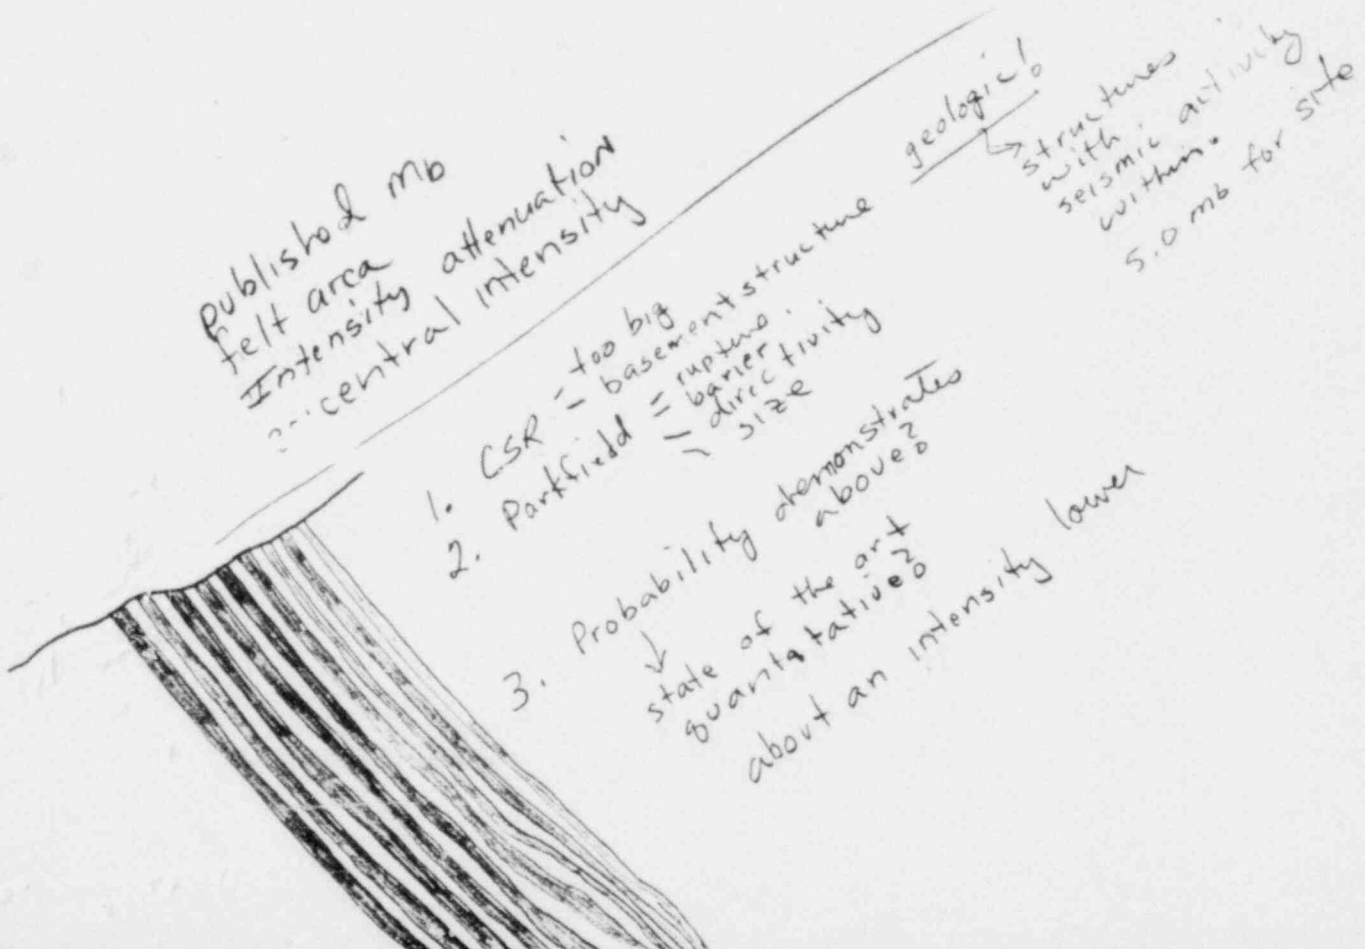 published Mb
felt area
Intensity attenuation
central intensity
geologic!
structures
with
seismic activity
within.
5.0 mb for site
1. CSR = too big
= basement structure
2. Parkfield = rupture
= barier
= directivity
size
3. Probability demonstrates
above?
↓
state of the art
quantatative?
about an intensity lower